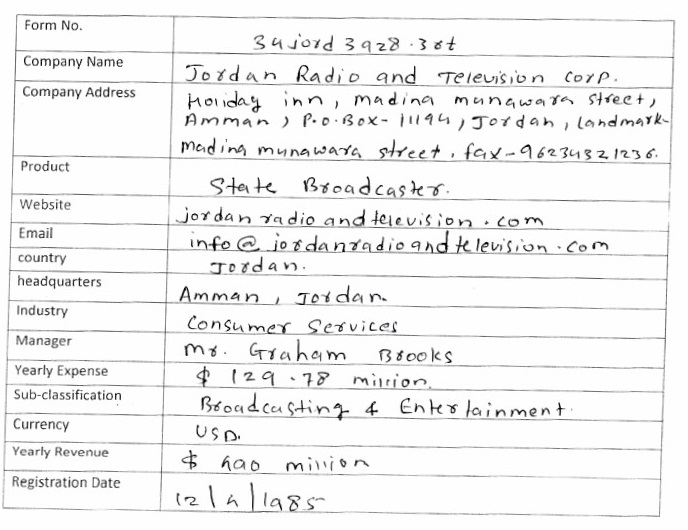 Form No. 34jord3928.3rt
Company Name Jordan Radio and Television corp.
Company Address Holiday inn, madina munawara street,
Amman, P.O.Box-11194, Jordan, landmark-
madina munawara street, fax-96234321236.
Product State Broadcaster.
Website jordanradioandtelevision.com
Email info@jordanradioandtelevision.com
country Jordan.
headquarters Amman, Jordan.
Industry Consumer Services
Manager Mr. Graham Brooks
Yearly Expense $ 129.78 million.
Sub-classification Broadcasting & Entertainment.
Currency USD.
Yearly Revenue $ 490 million
Registration Date 12/4/1985